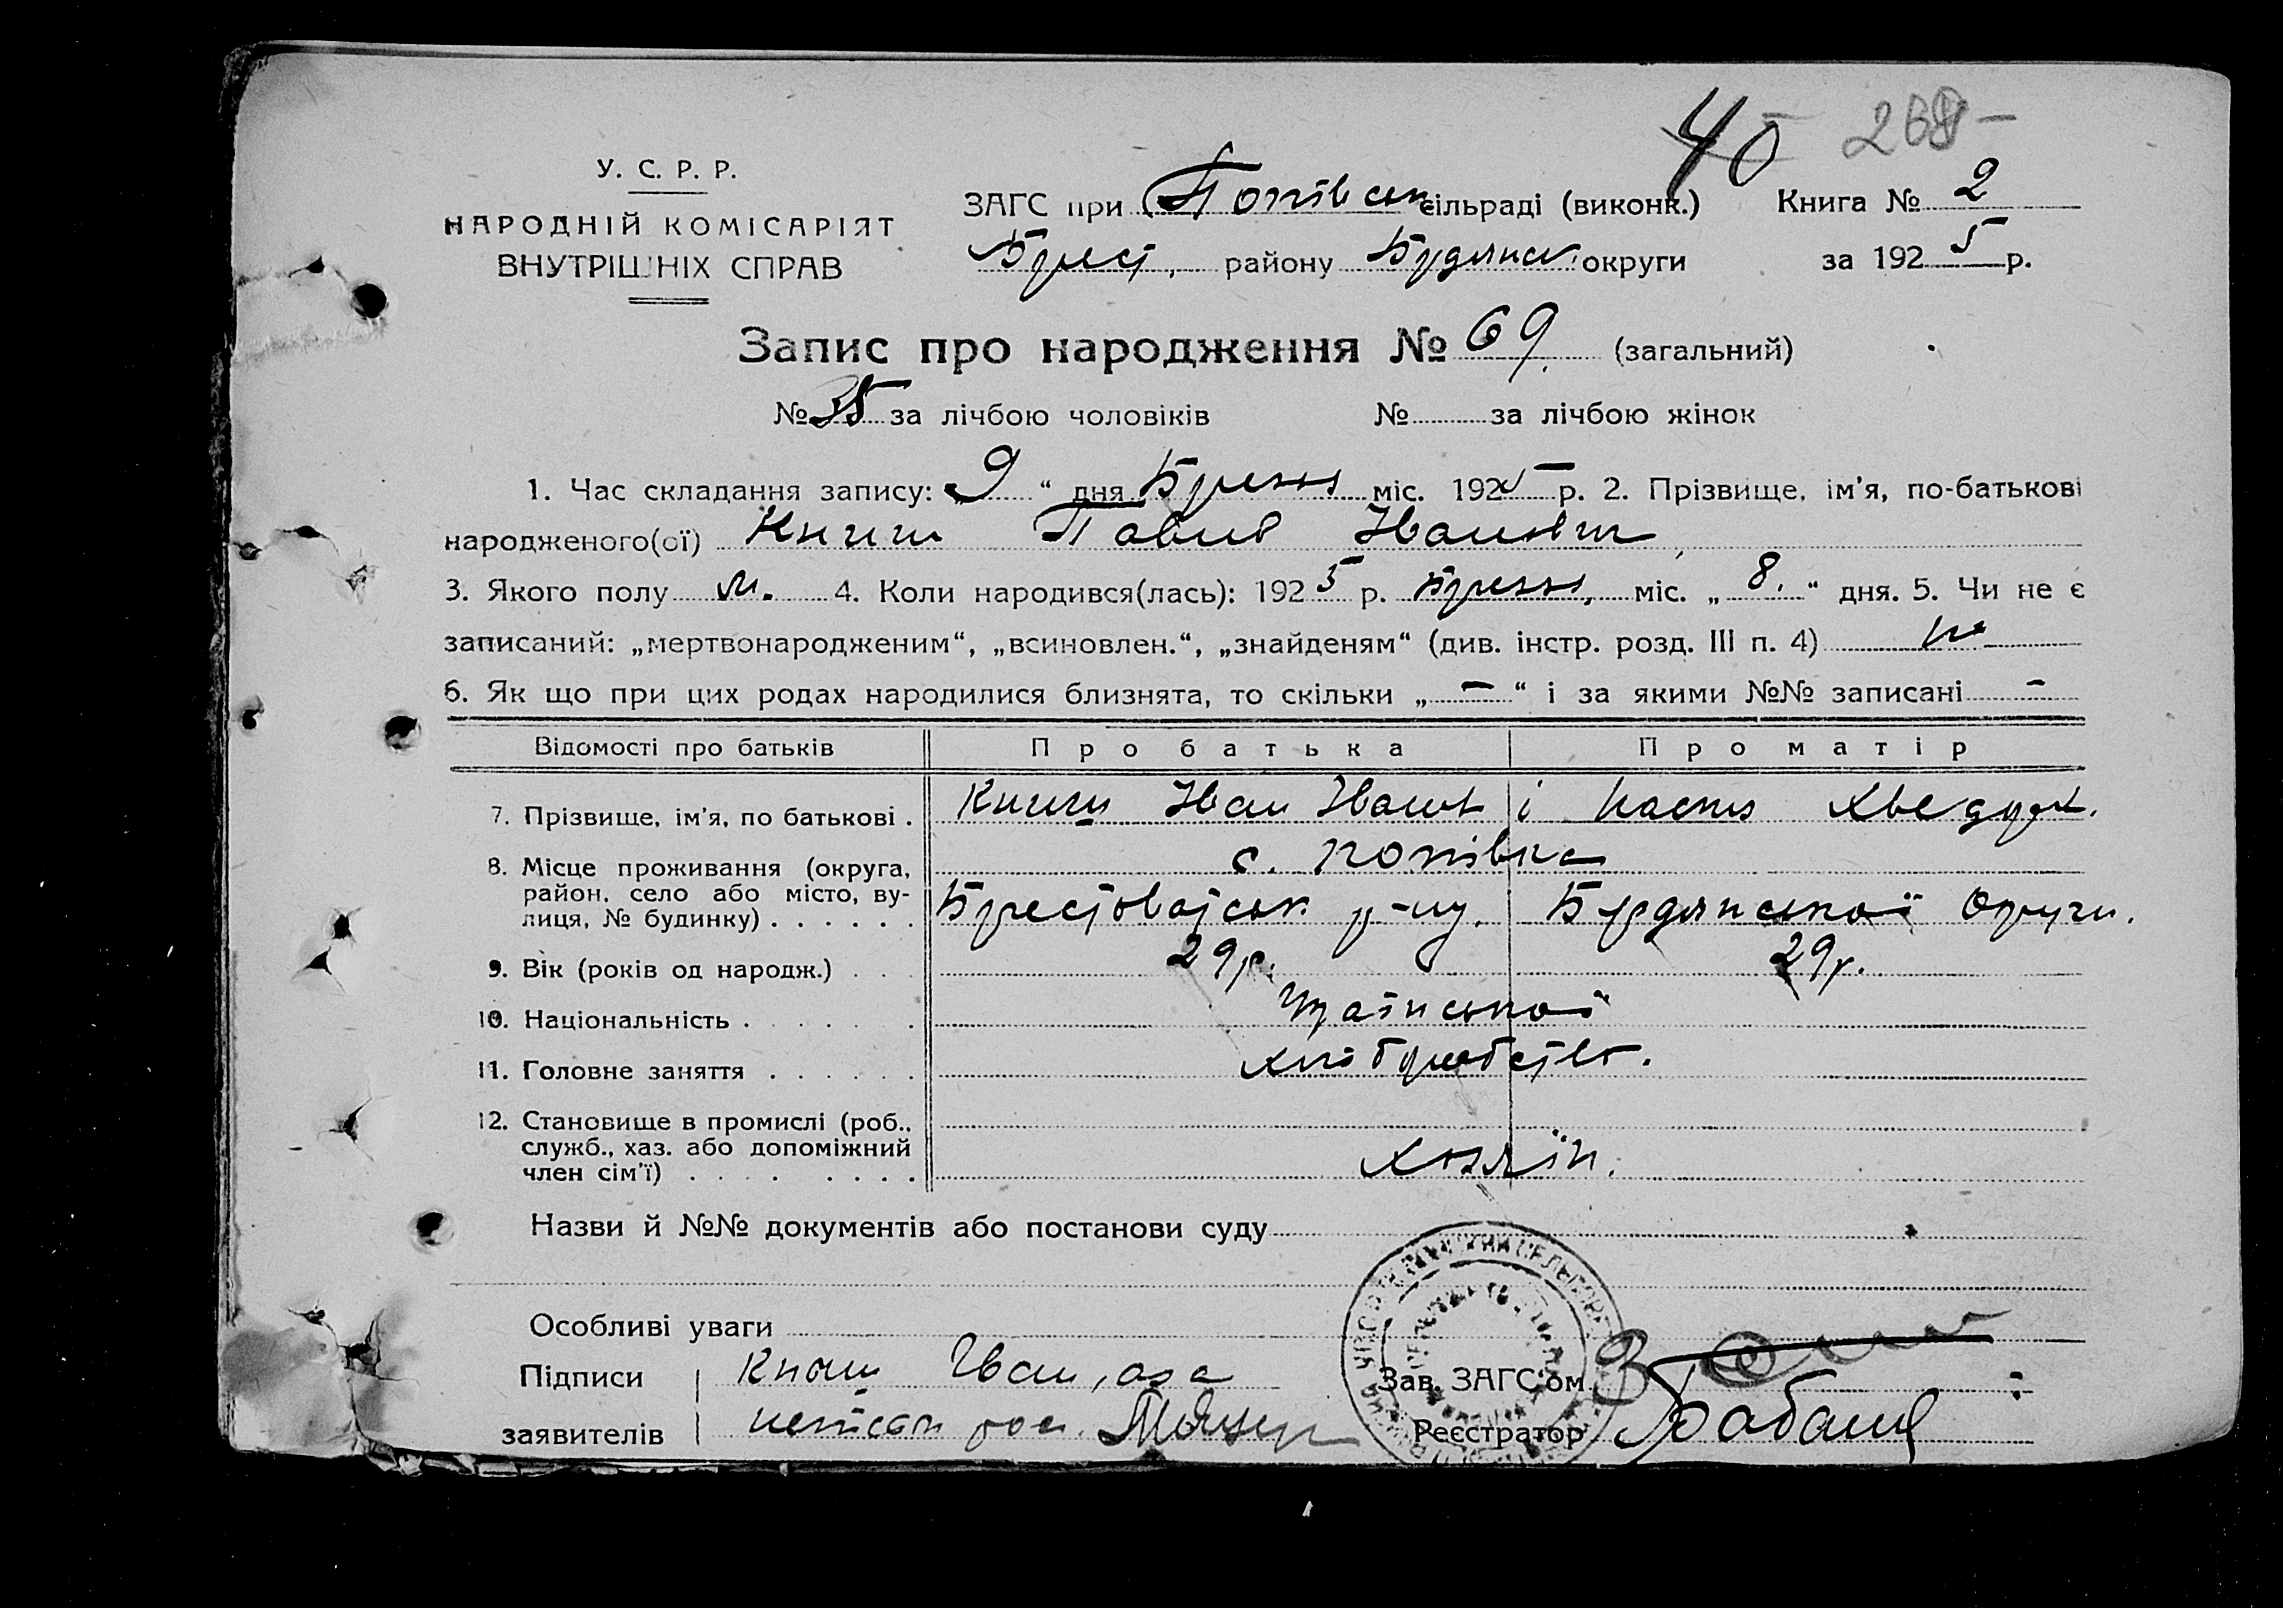 40 268-
У. С. Р. Р.
НАРОДНІЙ КОМІСАРІЯТ
ВНУТРІШНІХ СПРАВ
ЗАГС при Попівськ сільраді (виконк.) Книга № 2
Брест, району Бердянськ. округи за 1925 р.
Запис про народження № 69. (загальний)
№ 35 за лічбою чоловіків № за лічбою жінок
1. Час складання запису: „9“ дня Брезня міс. 1925 р. 2. Прізвище, ім'я, по-батькові
народженого(ої) Книш Павло Іванович
3. Якого полу м. 4. Коли народився(лась): 1925 р. Брезня, міс. „8.“ дня. 5. Чи не є
записаний: „мертвонародженим“, „всиновлен.“, „знайденям“ (див. інстр. розд. III п. 4) ні
6. Як що при цих родах народилися близнята, то скільки „–“ і за якими №№ записані –
Відомості про батьків Про батька Про матір
7. Прізвище, ім'я, по батькові . Книш Іван Іванов і Настя Хведоров.
8. Місце проживання (округа, с. Попівка
район, село або місто, ву-
лиця, № будинку) . . . . . . Брестовадськ р-ну. Бердянської Округи.
9. Вік (років од народж.) . . . 29р. 29р.
10. Національність . . . . . . Української
11. Головне заняття . . . . . . хліборобство.
12. Становище в промислі (роб.,
служб., хаз. або допоміжний
член сім'ї) . . . . . . . . Хозяїн.
Назви й №№ документів або постанови суду
Особливі уваги
Підписи Книш Иван, а за
заявителів неписьм рос.
Зав. ЗАГС'ом
Реєстратор